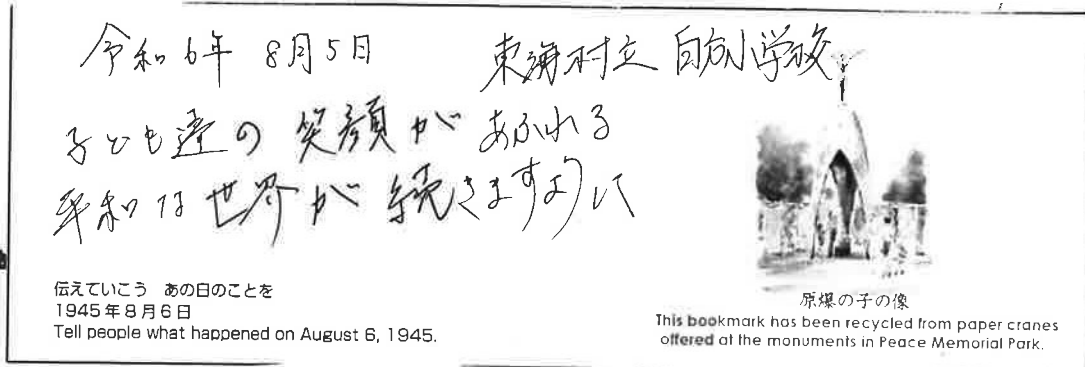 令和6年 8月5日 東海村立 白方小学校
子ども達の 笑顔が あふれる
平和な 世界が 続きますように
伝えていこう あの日のことを
1945年8月6日
Tell people what happened on August 6, 1945.
原爆の子の像
This bookmark has been recycled from paper cranes
offered at the monuments in Peace Memorial Park.